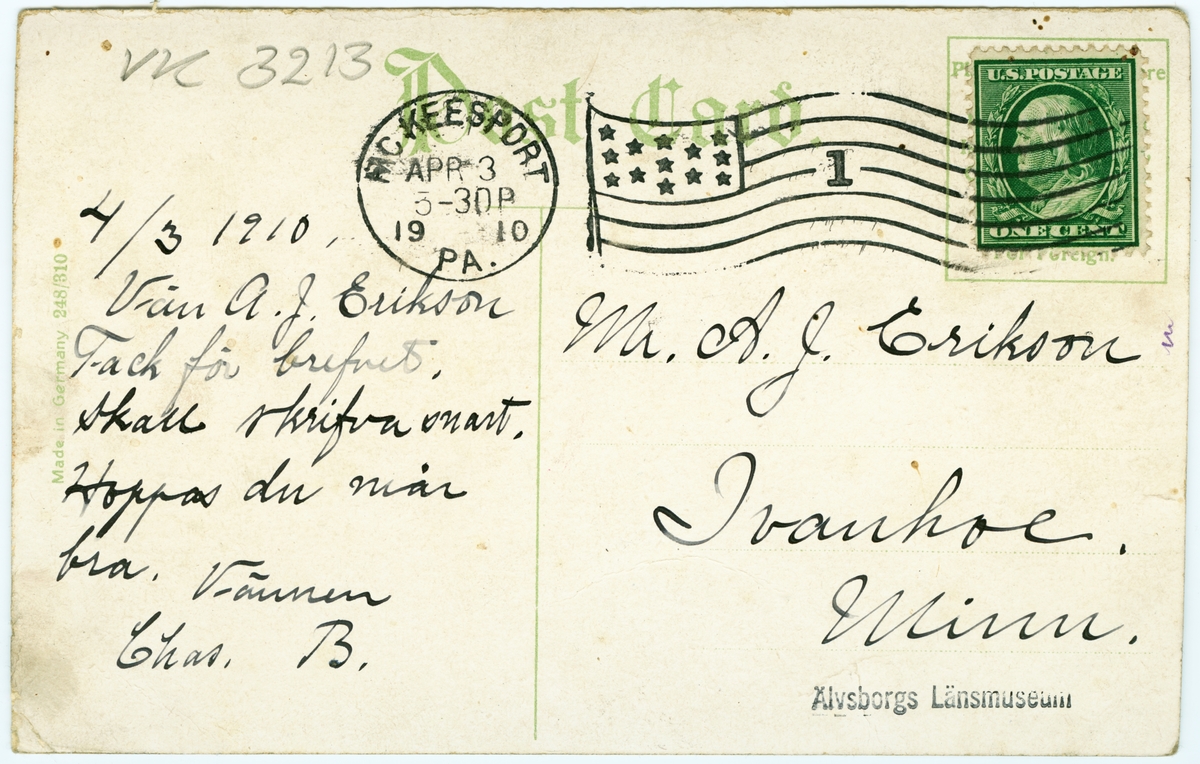 VK 3213
Post Card.
MCKEESPORT
APR 3
3-30P
19 10
PA.
1
U.S. POSTAGE
ONE CENT
For Foreign
4/3 1910.
Vän A. J. Erikson
Tack för brefvet.
Skall skrifva snart.
Hoppas du mår
bra.
Vännen
Chas. B.
Made in Germany 248/310
Mr. A. J. Erikson
Ivanhoe.
Minn.
Älvsborgs Länsmuseum